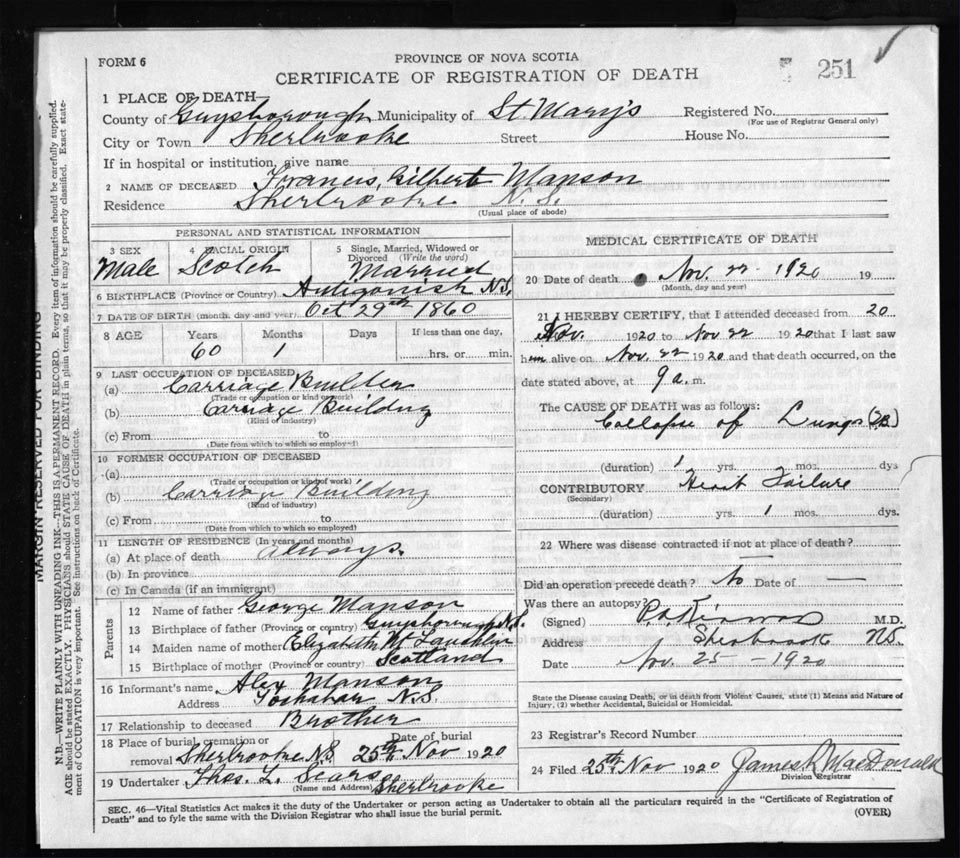 FORM 6
PROVINCE OF NOVA SCOTIA
CERTIFICATE OF REGISTRATION OF DEATH
251
1 PLACE OF DEATH—
County of Guysborough Municipality of St. Mary's Registered No.
(For use of Registrar General only)
City or Town Sherbrooke Street House No.
If in hospital or institution, give name
2 NAME OF DECEASED Francis, Gilbert Manson
Residence Sherbrooke N.S.
(Usual place of abode)
PERSONAL AND STATISTICAL INFORMATION
3 SEX Male
4 RACIAL ORIGIN Scotch
5 Single, Married, Widowed or Divorced (Write the word) Married
6 BIRTHPLACE (Province or Country) Antigonish N.S.
7 DATE OF BIRTH (month, day and year) Oct 29th 1860
8 AGE Years Months Days If less than one day,
60 1 hrs. or min.
9 LAST OCCUPATION OF DECEASED
(a) Carriage Builder
(Trade or occupation or kind of work)
(b) Carriage Building
(Kind of industry)
(c) From to
(Date from which to which so employed)
10 FORMER OCCUPATION OF DECEASED
(a)
(Trade or occupation or kind of work)
(b) Carriage Building
(Kind of industry)
(c) From to
(Date from which to which so employed)
11 LENGTH OF RESIDENCE (In years and months)
(a) At place of death always
(b) In province
(c) In Canada (if an immigrant)
Parents
12 Name of father George Manson
13 Birthplace of father (Province or country) Guysborough N.S.
14 Maiden name of mother Elizabeth
15 Birthplace of mother (Province or country) Scotland
16 Informant's name Alex Manson
Address N.S.
17 Relationship to deceased Brother
18 Place of burial, cremation or removal Sherbrooke N.S. Date of burial 25th Nov 1920
19 Undertaker Thos. L. Sears Sherbrooke
(Name and Address)
MEDICAL CERTIFICATE OF DEATH
20 Date of death Nov. 22 1920 19
(Month, day and year)
21 I HEREBY CERTIFY, that I attended deceased from 20
Nov. 1920 to Nov 22 1920 that I last saw
him alive on Nov. 22 1920 and that death occurred, on the
date stated above, at 9 a. m.
The CAUSE OF DEATH was as follows:
Collapse of Lungs (T.B.)
(duration) 1 yrs. mos. dys
CONTRIBUTORY Heart Failure
(Secondary)
(duration) yrs. 1 mos. dys.
22 Where was disease contracted if not at place of death?
—
Did an operation precede death? No Date of —
Was there an autopsy?
(Signed) M.D.
Address Sherbrooke N.S.
Date Nov. 25 – 1920
State the Disease causing Death, or in death from Violent Causes, state (1) Means and Nature of
Injury, (2) whether Accidental, Suicidal or Homicidal.
23 Registrar's Record Number
24 Filed 25th Nov 1920 James R MacDonald
Division Registrar
SEC. 46—Vital Statistics Act makes it the duty of the Undertaker or person acting as Undertaker to obtain all the particulars required in the "Certificate of Registration of
Death" and to fyle the same with the Division Registrar who shall issue the burial permit. (OVER)
MARGIN RESERVED FOR BINDING
N.B.—WRITE PLAINLY WITH UNFADING INK—THIS IS A PERMANENT RECORD. Every item of information should be carefully supplied.
AGE should be stated EXACTLY. PHYSICIANS should STATE CAUSE OF DEATH in plain terms, so that it may be properly classified. Exact state-
ment of OCCUPATION is very important. See instructions on back of Certificate.